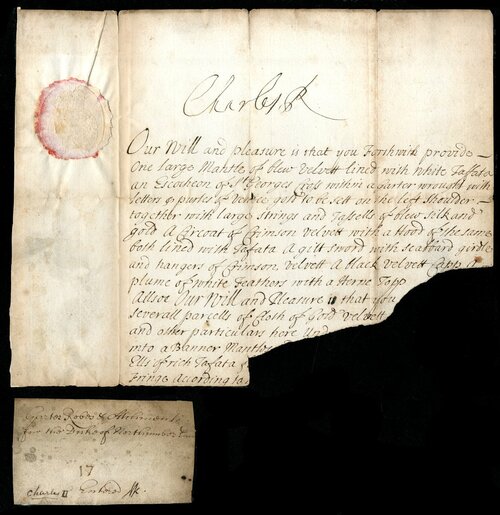 Charles R
Our Will and pleasure is that you Forthwith provide
One large Mantle of blew Velvett lined with white Tafata
an Escocheon of St Georges Cross within a Garter wrought with
letters & purles of Venice gold to be sett on the left Shoulder
together with large strings and Tassells of blew silk and
gold A Circoat of Crimson velvett with a Hood of the same
both lined with Tafata A gilt sword with Scabbard girdle
and hangers of Crimson velvett A black velvett Capp A
plume of White Feathers with a Herne Topp
Allsoe Our Will and Pleasure is that you
severall parcells of Cloth of Gold Velvett
and other particulars here
into a Banner Mantle
Ells of rich Tafata
Fringe According to
Garter Robes &
for the Duke of Northumber
17
Charles II Entered